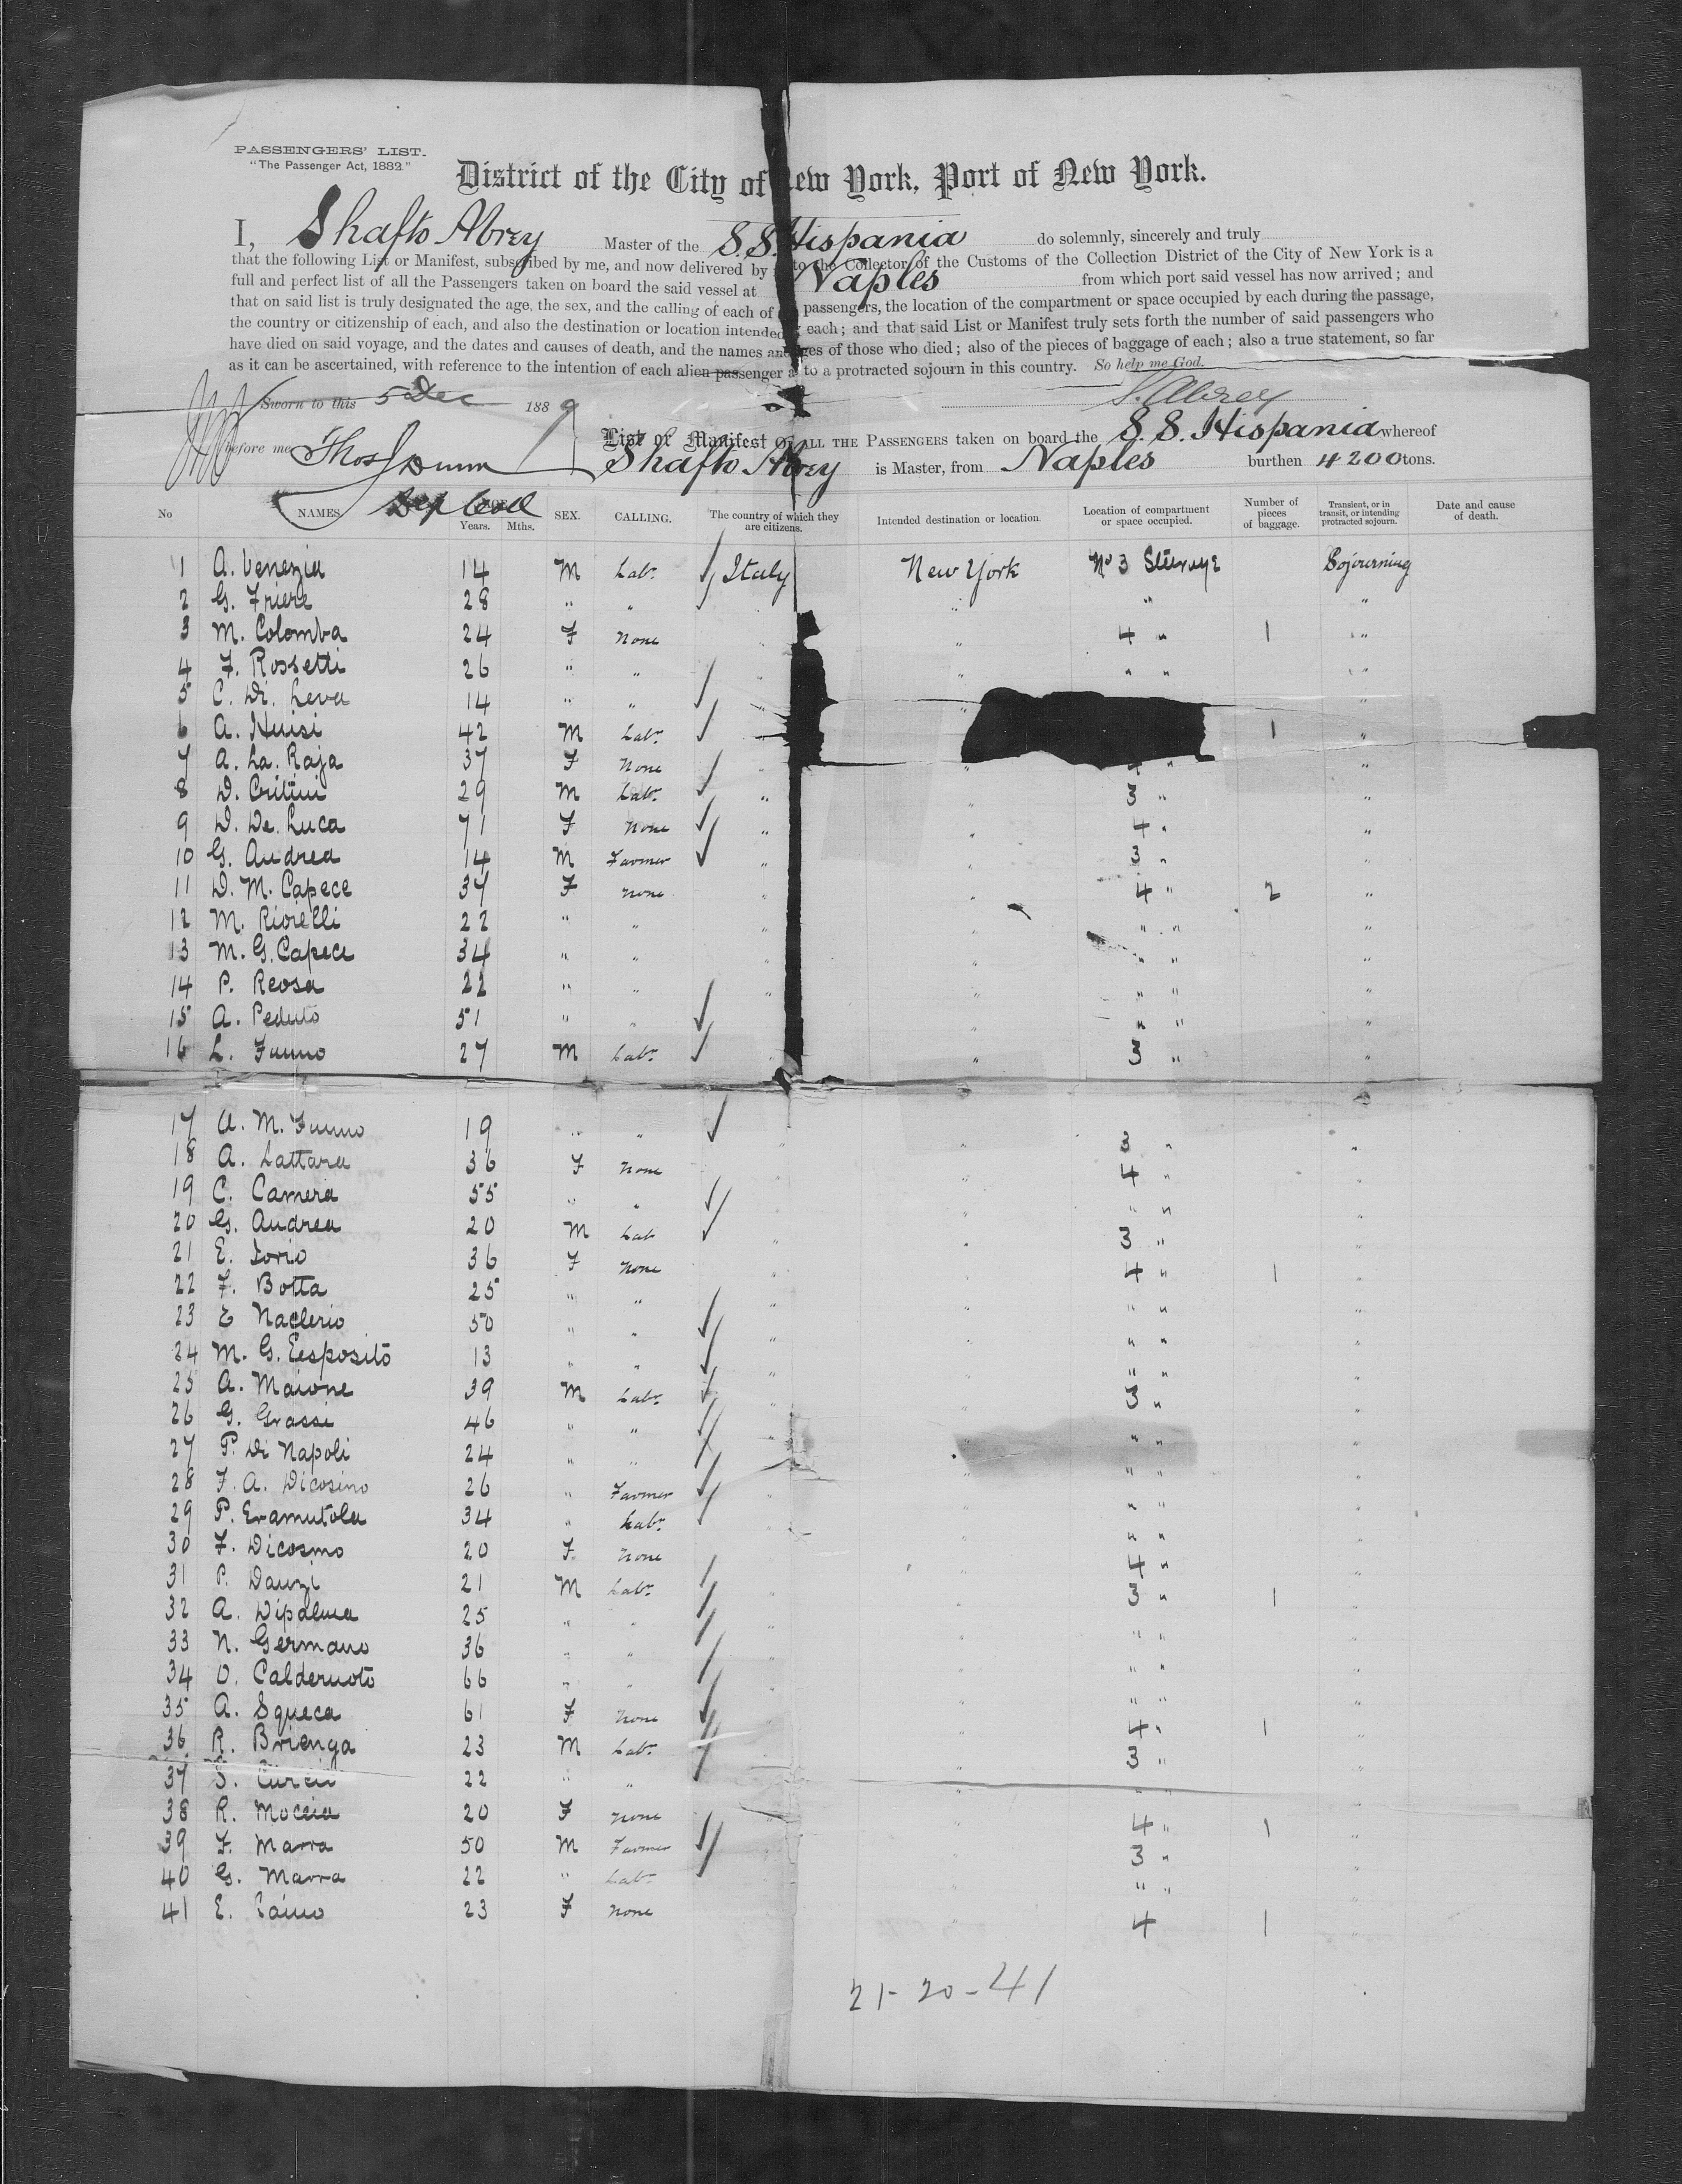 PASSENGERS' LIST.
"The Passenger Act, 1882."
District of the City of New York, Port of New York.
I, Shafto Abrey Master of the S.S. Hispania do solemnly, sincerely and truly
that the following List or Manifest, subscribed by me, and now delivered by to the Collector of the Customs of the Collection District of the City of New York is a
full and perfect list of all the Passengers taken on board the said vessel at Naples from which port said vessel has now arrived; and
that on said list is truly designated the age, the sex, and the calling of each of passengers, the location of the compartment or space occupied by each during the passage,
the country or citizenship of each, and also the destination or location intended each; and that said List or Manifest truly sets forth the number of said passengers who
have died on said voyage, and the dates and causes of death, and the names and ages of those who died; also of the pieces of baggage of each; also a true statement, so far
as it can be ascertained, with reference to the intention of each alien passenger as to a protracted sojourn in this country. So help me God.
Sworn to this 5 Dec 1889 S. Abrey
before me Thos J Dunn
Dep Coll
List or Manifest OF ALL THE PASSENGERS taken on board the S.S. Hispania whereof
Shafto Abrey is Master, from Naples burthen 4200 tons.
No NAMES. AGE Years. Mths. SEX. CALLING. The country of which they are citizens. Intended destination or location. Location of compartment or space occupied. Number of pieces of baggage. Transient, or in transit, or intending protracted sojourn. Date and cause of death.
1 A. Venezia 14 M Labr. Italy New York No 3 Steerage Sojourning
2 G. Friere 28 " " " " "
3 M. Colomba 24 F None " " 4 " 1 "
4 F. Rossetti 26 " " " " " " "
5 C. Di. Leva 14 " " " " "
6 A. Nuisi 42 M Labr. " 1 "
7 A. La. Raja 37 F None " " 4 " "
8 D. Critini 29 M Labr. " " 3 " "
9 D. De. Luca 71 F None " " 4 " "
10 G. Andrea 14 M Farmer " " 3 " "
11 D. M. Capece 37 F None " " 4 " 2 "
12 M. Riorelli 22 " " " " " " "
13 M. G. Capece 34 " " " " " " "
14 P. Reosa 22 " " " " " " "
15 A. Peduto 51 " " " " " "
16 L. Funno 27 M Labr. " " 3 " "
17 A. M. Funno 19 " " " " 3 " "
18 A. Lattara 36 F None " 4 " "
19 C. Camera 55 " " " " " " "
20 G. Andrea 20 M Lab " " 3 " "
21 E. Iorio 36 F None " " 4 " 1 "
22 F. Botta 25 " " " " " " "
23 E Naclerio 50 " " " " " " "
24 M. G. Eesposito 13 " " " " " "
25 A. Maione 39 M Labr. " " 3 " "
26 G. Grassi 46 " " " " " " "
27 P. Di Napoli 24 " " " " " "
28 F. A. Dicosino 26 " Farmer " " " "
29 P. Eramutola 34 " Labr. " " " "
30 F. Dicosmo 20 F. None " 4 " "
31 P. Dauzi 21 M Labr. " 3 " 1 "
32 A. Dipalma 25 " " " " " " "
33 N. Germano 36 " " " " " "
34 O. Caldernoto 66 " " " " " "
35 A. Squeca 61 F None " " 4 " 1 "
36 R. Brienga 23 M Labr. " 3 " "
37 S. Curcii 22 " " " " " "
38 R. Moccia 20 F None " 4 " 1 "
39 F. Marra 50 M Farmer 3 " "
40 G. Marra 22 " Labr. " " "
41 E. 23 F None " 4 1 "
21 - 20 - 41